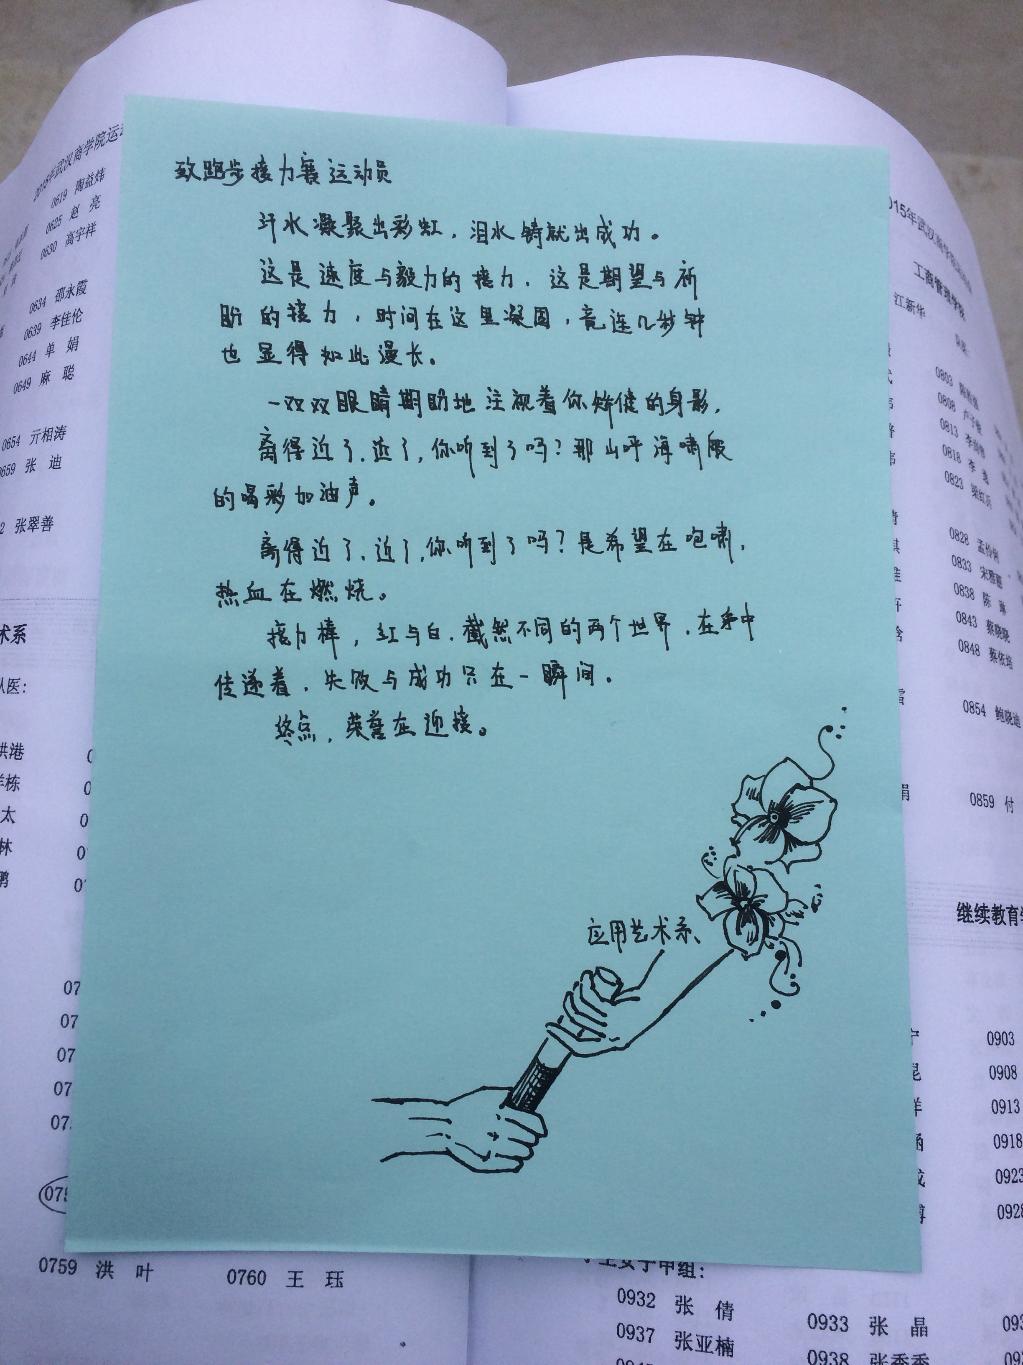 2015年武汉商学院运
0619 陶益炜
0625 赵 亮
0630 高宇祥
0634 邵永霞
0639 李佳伦
0644 单 娟
0649 麻 聪
0654 亓相涛
0659 张 迪
张翠善
术系
队医:
洪港
太
林
鹏
07
07
07
07
07
0759 洪 叶 0760 王 珏
致跑步接力赛运动员
汗水凝聚出彩虹，泪水铸就出成功。
这是速度与毅力的接力，这是期望与祈
盼的接力，时间在这里凝固，竟连几秒钟
也显得如此漫长。
一双双眼睛期盼地注视着你矫健的身影，
离得近了，近了，你听到了吗？那山呼海啸般
的喝彩加油声。
离得近了，近了，你听到了吗？是希望在咆啸，
热血在燃烧。
接力棒，红与白，截然不同的两个世界，在手中
传递着，失败与成功只在一瞬间。
终点，荣誉在迎接。
应用艺术系、
015年武汉商学院
工商管理学院
江新华
0803
0808
0813
0818 李
0823
0828
0833 宋雅
0838 陈 琳
0843 蔡晓
0848 蔡依培
0854 鲍晓迪
0859 付
继续教育学
0903
0908
0913
0918
0923
0928
女子甲组:
0932 张 倩 0933 张 晶
0937 张亚楠 0938 张秀秀